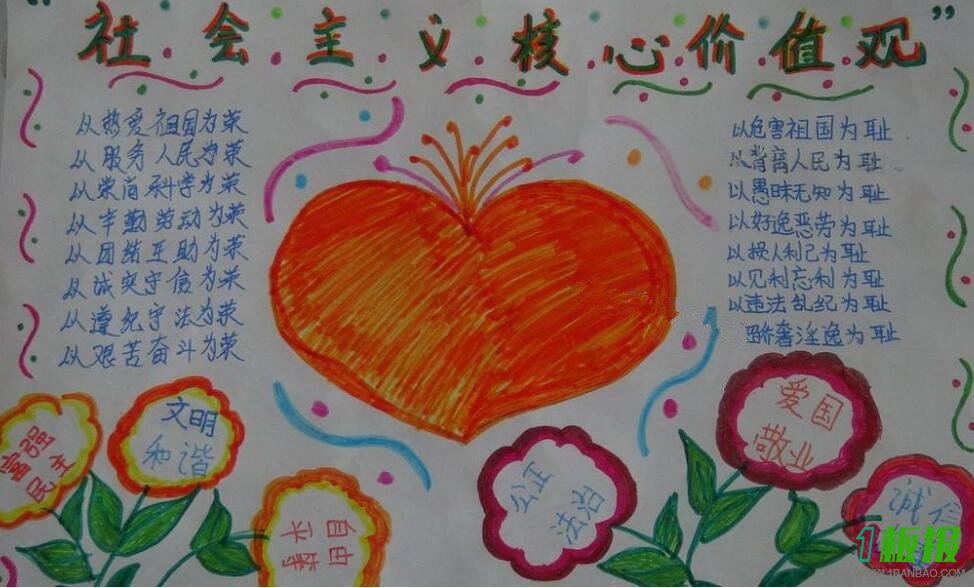 “社会主义核心价值观”
从热爱祖国为荣
从服务人民为荣
从崇尚科学为荣
从辛勤劳动为荣
从团结互助为荣
从诚实守信为荣
从遵纪守法为荣
从艰苦奋斗为荣
以危害祖国为耻
以背离人民为耻
以愚昧无知为耻
以好逸恶劳为耻
以损人利己为耻
以见利忘利为耻
以违法乱纪为耻
骄奢淫逸为耻
富强
民主
文明
和谐
自由
平等
公正
法治
爱国
敬业
诚信
1板报
WWW.1BANBAO.COM